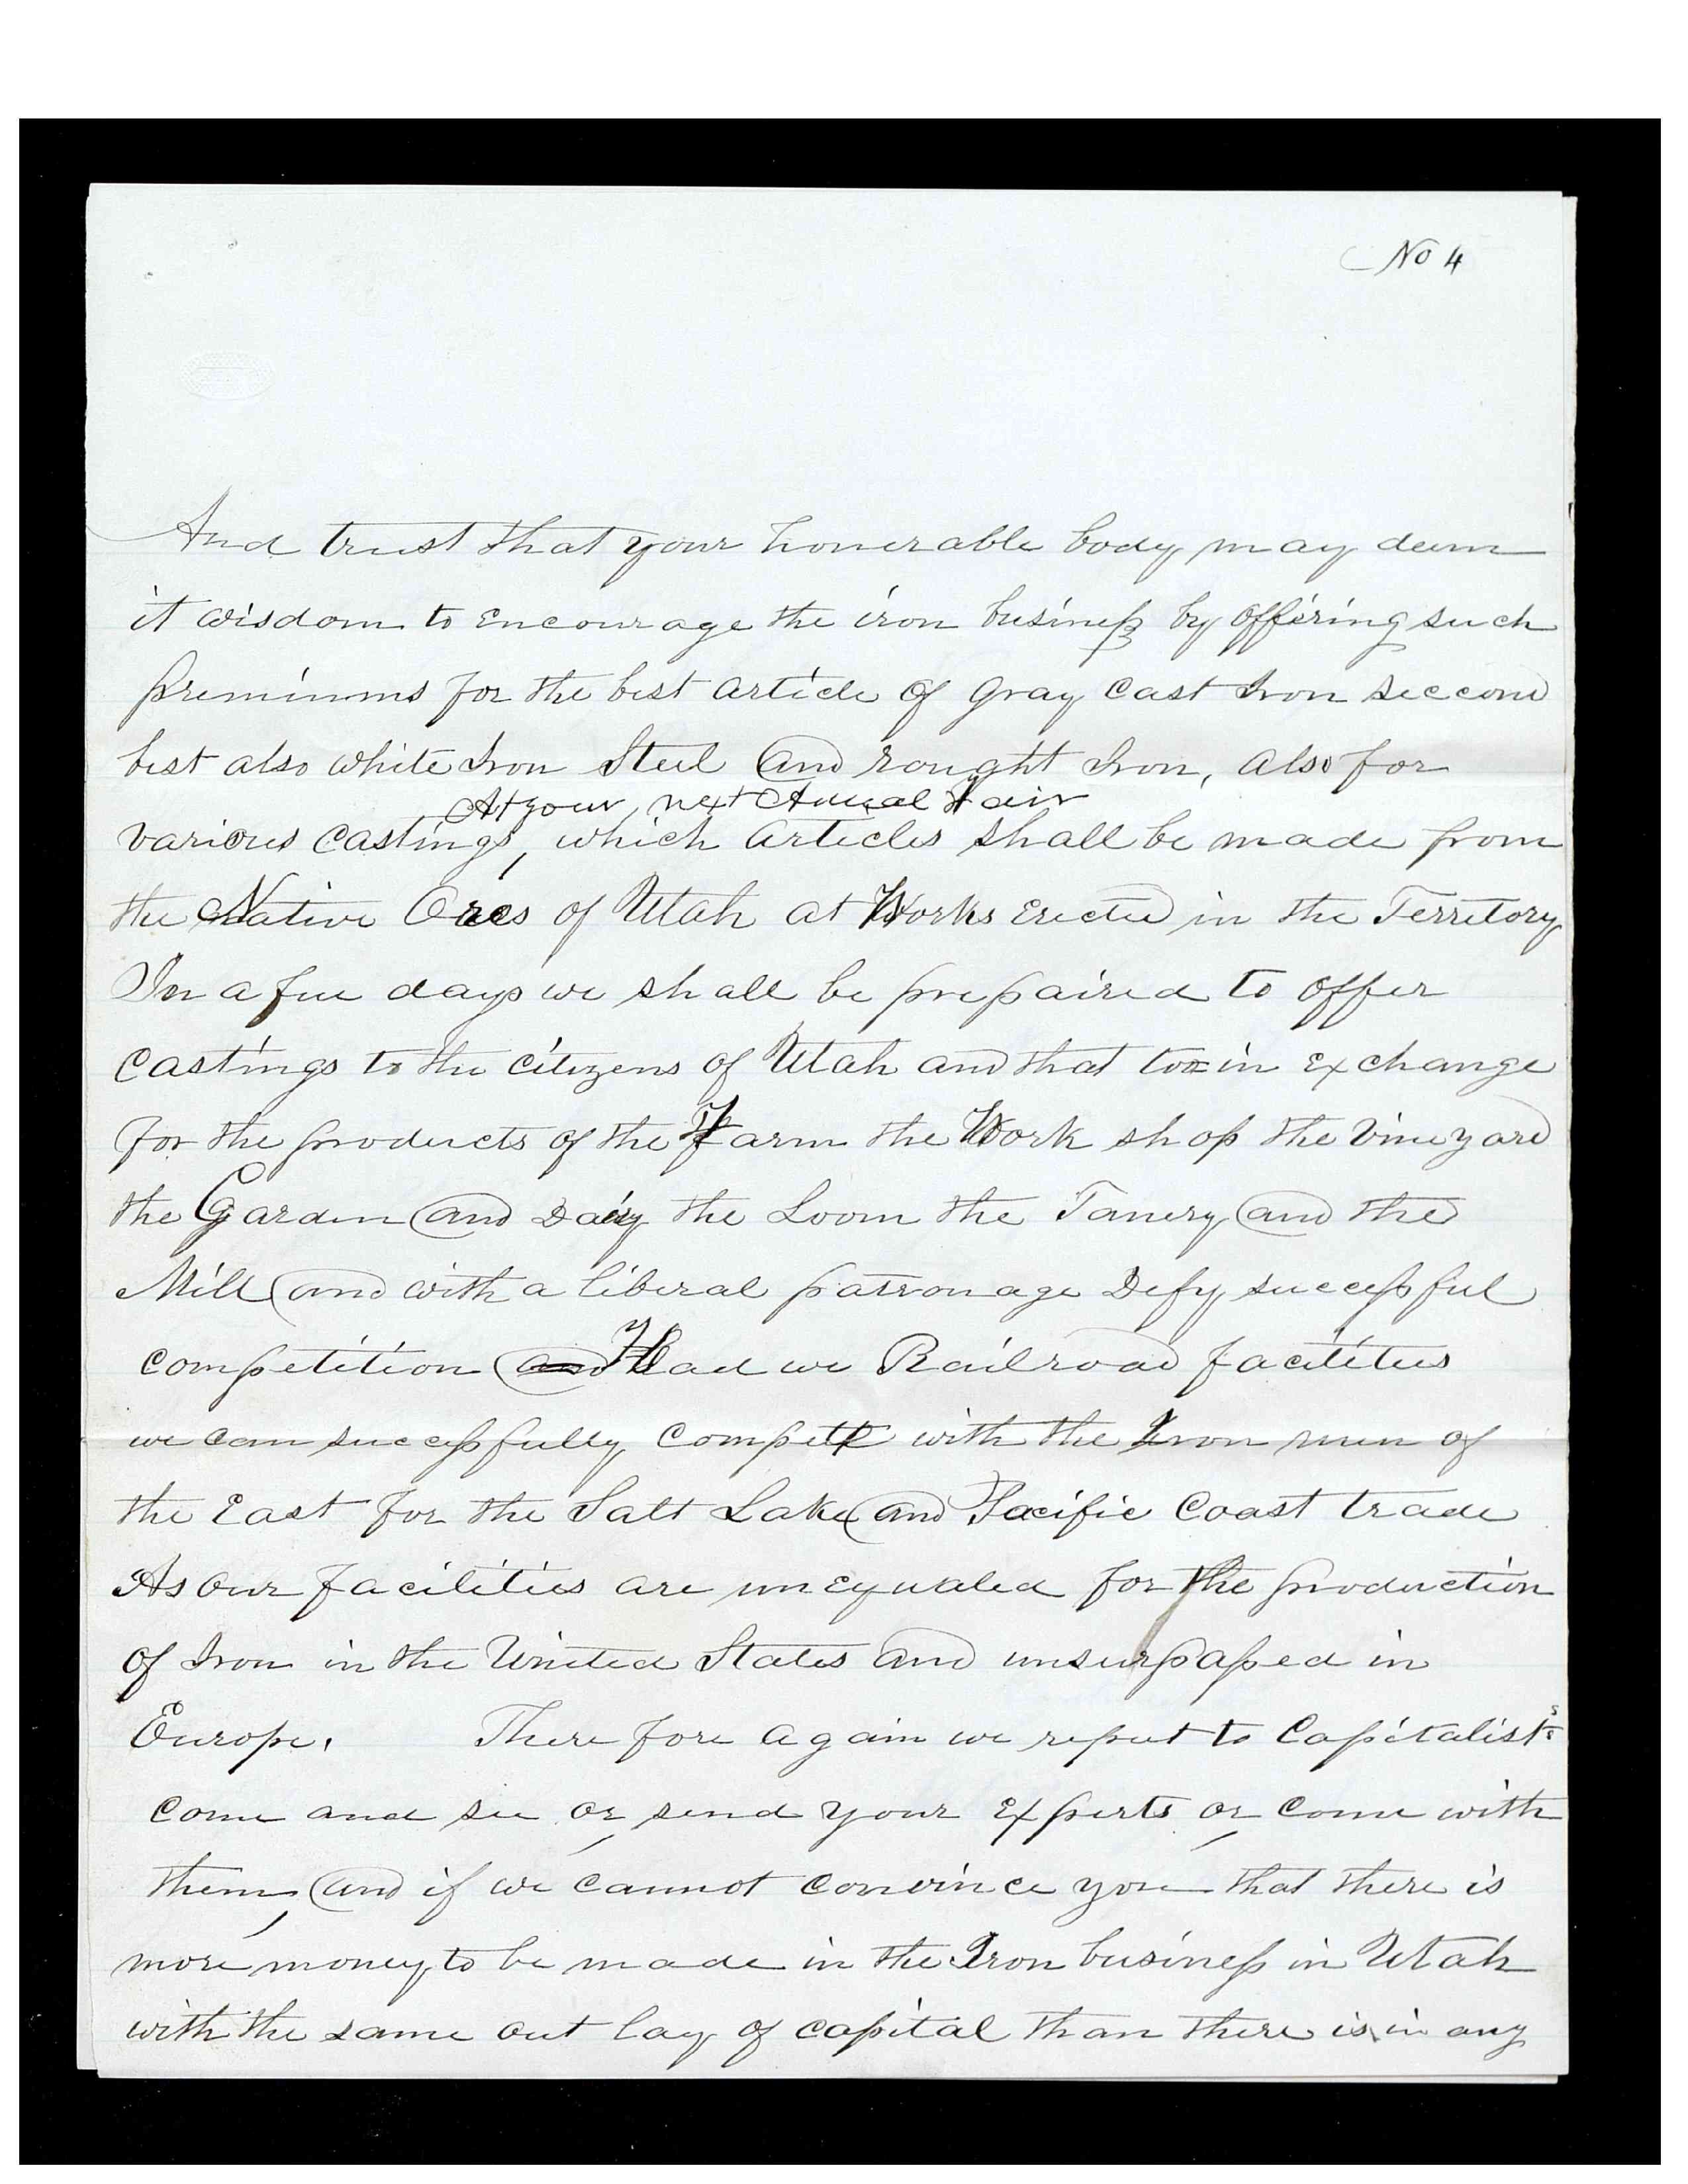 No 4
And trust that your honerable body may deem
it wisdom to encourage the iron business by offering such
premiums for the best article of Gray Cast Iron seccond
best also white Iron Steel and rought Iron, also for
At your next Anual Fair
various castings, which articles shall be made from
the Native Ores of Utah at Works erected in the Territory
In a few days we shall be prepaired to offer
castings to the citizens of Utah and that too in exchange
for the products of the Farm the Work shop the Vineyard
the Garden and Dairy the Loom the Tanery and the
Mill and with a liberal patronage Defy successful
competition and Had we Railroad facilities
we can successfully compete with the Iron men of
the East for the Salt Lake and Pacific Coast trade
As our facilities are unequaled for the production
of Iron in the United States and unsurpassed in
Europe. There fore again we repeet to Capitalists
come and see or send your experts or come with
them, and if we cannot convince you that there is
more money to be made in the Iron business in Utah
with the same out lay of capital than there is in any